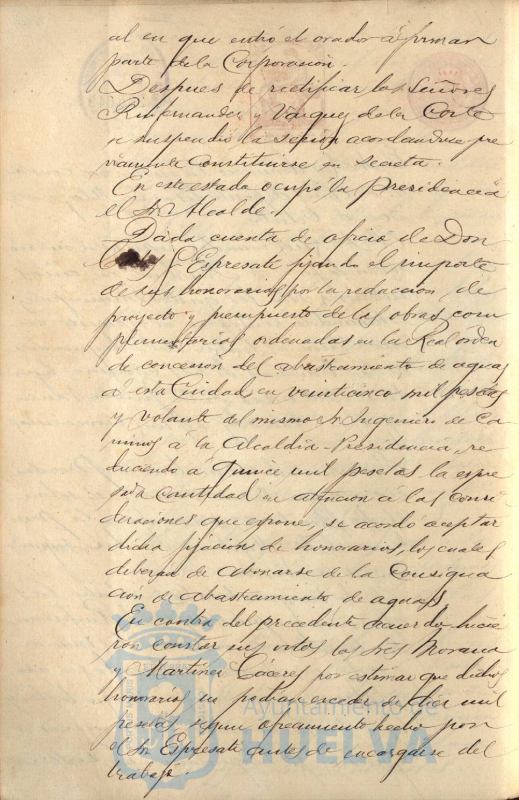 al en que entró el orador á formar
parte de la Corporación.
Despues de rectificar los Señores
y Vazquez de la Corte
se suspendió la sesión acordandose pre
viamente constituirse en secreta.
En este estado ocupó la Presidencia
el Sr. Alcalde.
Dada cuenta de oficio de Don
Espresate fijando el importe
de sus honorarios por la redacción de
proyecto y presupuesto de las obras com
plementarias ordenadas en la Real órden
de concesion del abastecimiento de aguas
á esta Ciudad, en veinticinco mil pesetas
y volante del mismo Sr. Ingeniero de Ca
minos á la Alcaldía-Presidencia, re
duciendo á quince mil pesetas la espre
sada cantidad en atencion á las consi
deraciones que espone, se acordó aceptar
dicha fijación de honorarios, los cuales
deberan de abonarse de la Consigna
cion de abastecimiento de aguas.
En contra del precedente acuerdo hicie
ron constar sus votos los Sres Morano
y Martinez Cáceres por estimar que dichos
honorarios no podian esceder de diez mil
pesetas segun ofrecimiento hecho por
el Sr. Espresate antes de encargarse del
trabajo.
Ayuntamiento de
HUELVA